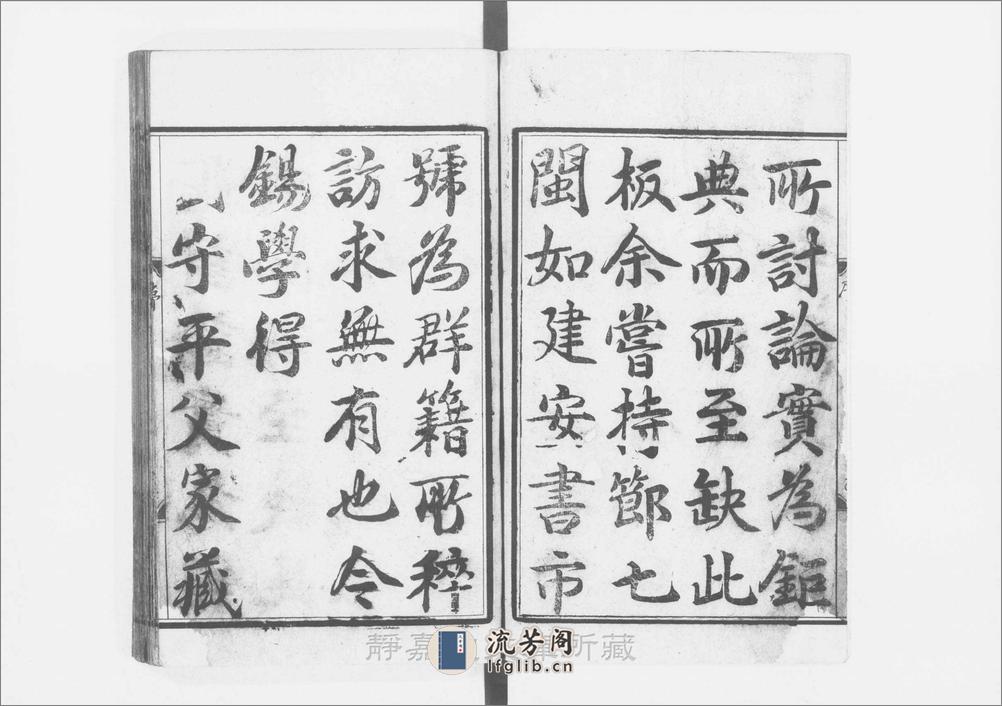 所討論實為鉅
典而所至缺此
板余嘗持節七
閩如建安書市
號為群籍所稡
訪求無有也令
錫學得
守平父家藏
序
靜嘉 所藏
流芳阁
lfglib.cn